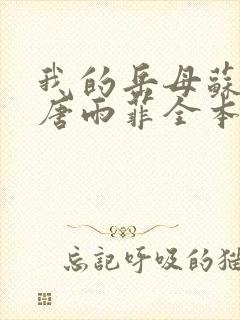 我的岳母蘇
唐雨菲全本
忘記呼吸的猫